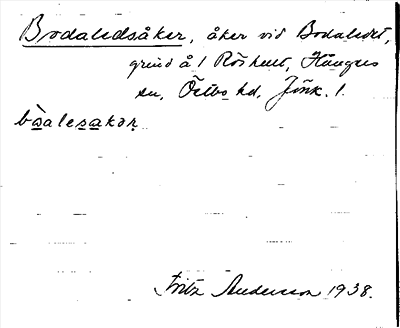 Bodaledsåker, åker vid Bodaledet,
grind å 1 Röshult, Hångers
sn, Östbo hd, Jönk. l.
bɷalesakər
Fritz Andersson 1938.